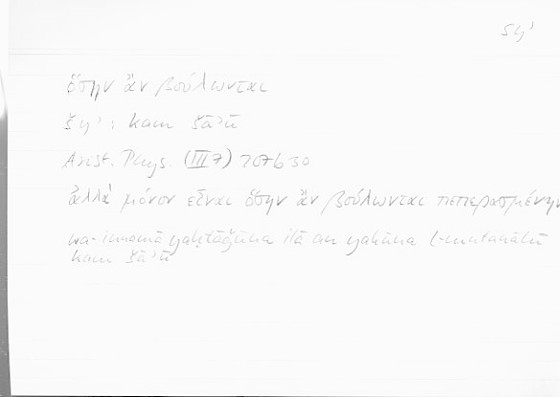 šyʾ
ὅσην ἂν βούλωνται
šyʾ: kam šāʾū
Arist. Phys. (III 7) 207b30
ἀλλὰ μόνον εἶναι ὅσην ἂν βούλωνται πεπερασμένην
wa-innamā yaḥtāǧūna ilā an yakūna l-mutanāhī
kam šāʾū